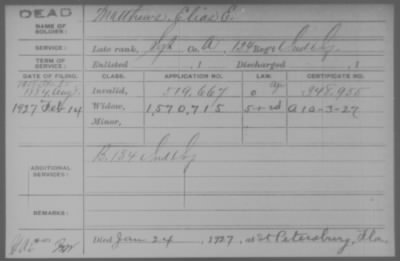 DEAD
NAME OF SOLDIER: Matthews, Elias E.
SERVICE: Late rank, Sgt Co. A, 154 Reg't Ind Inf
TERM OF SERVICE: Enlisted , 1 Discharged , 1
DATE OF FILING. CLASS. APPLICATION NO. LAW. CERTIFICATE NO.
1884, Aug Invalid, 519,667 948,955
1927 Feb 14 Widow, 1,570,715 A 10-3-27
Minor,
ADDITIONAL SERVICES: B. 154 Ind Inf
REMARKS:
Died Jan 24, 1927, at St Petersburg, Fla.